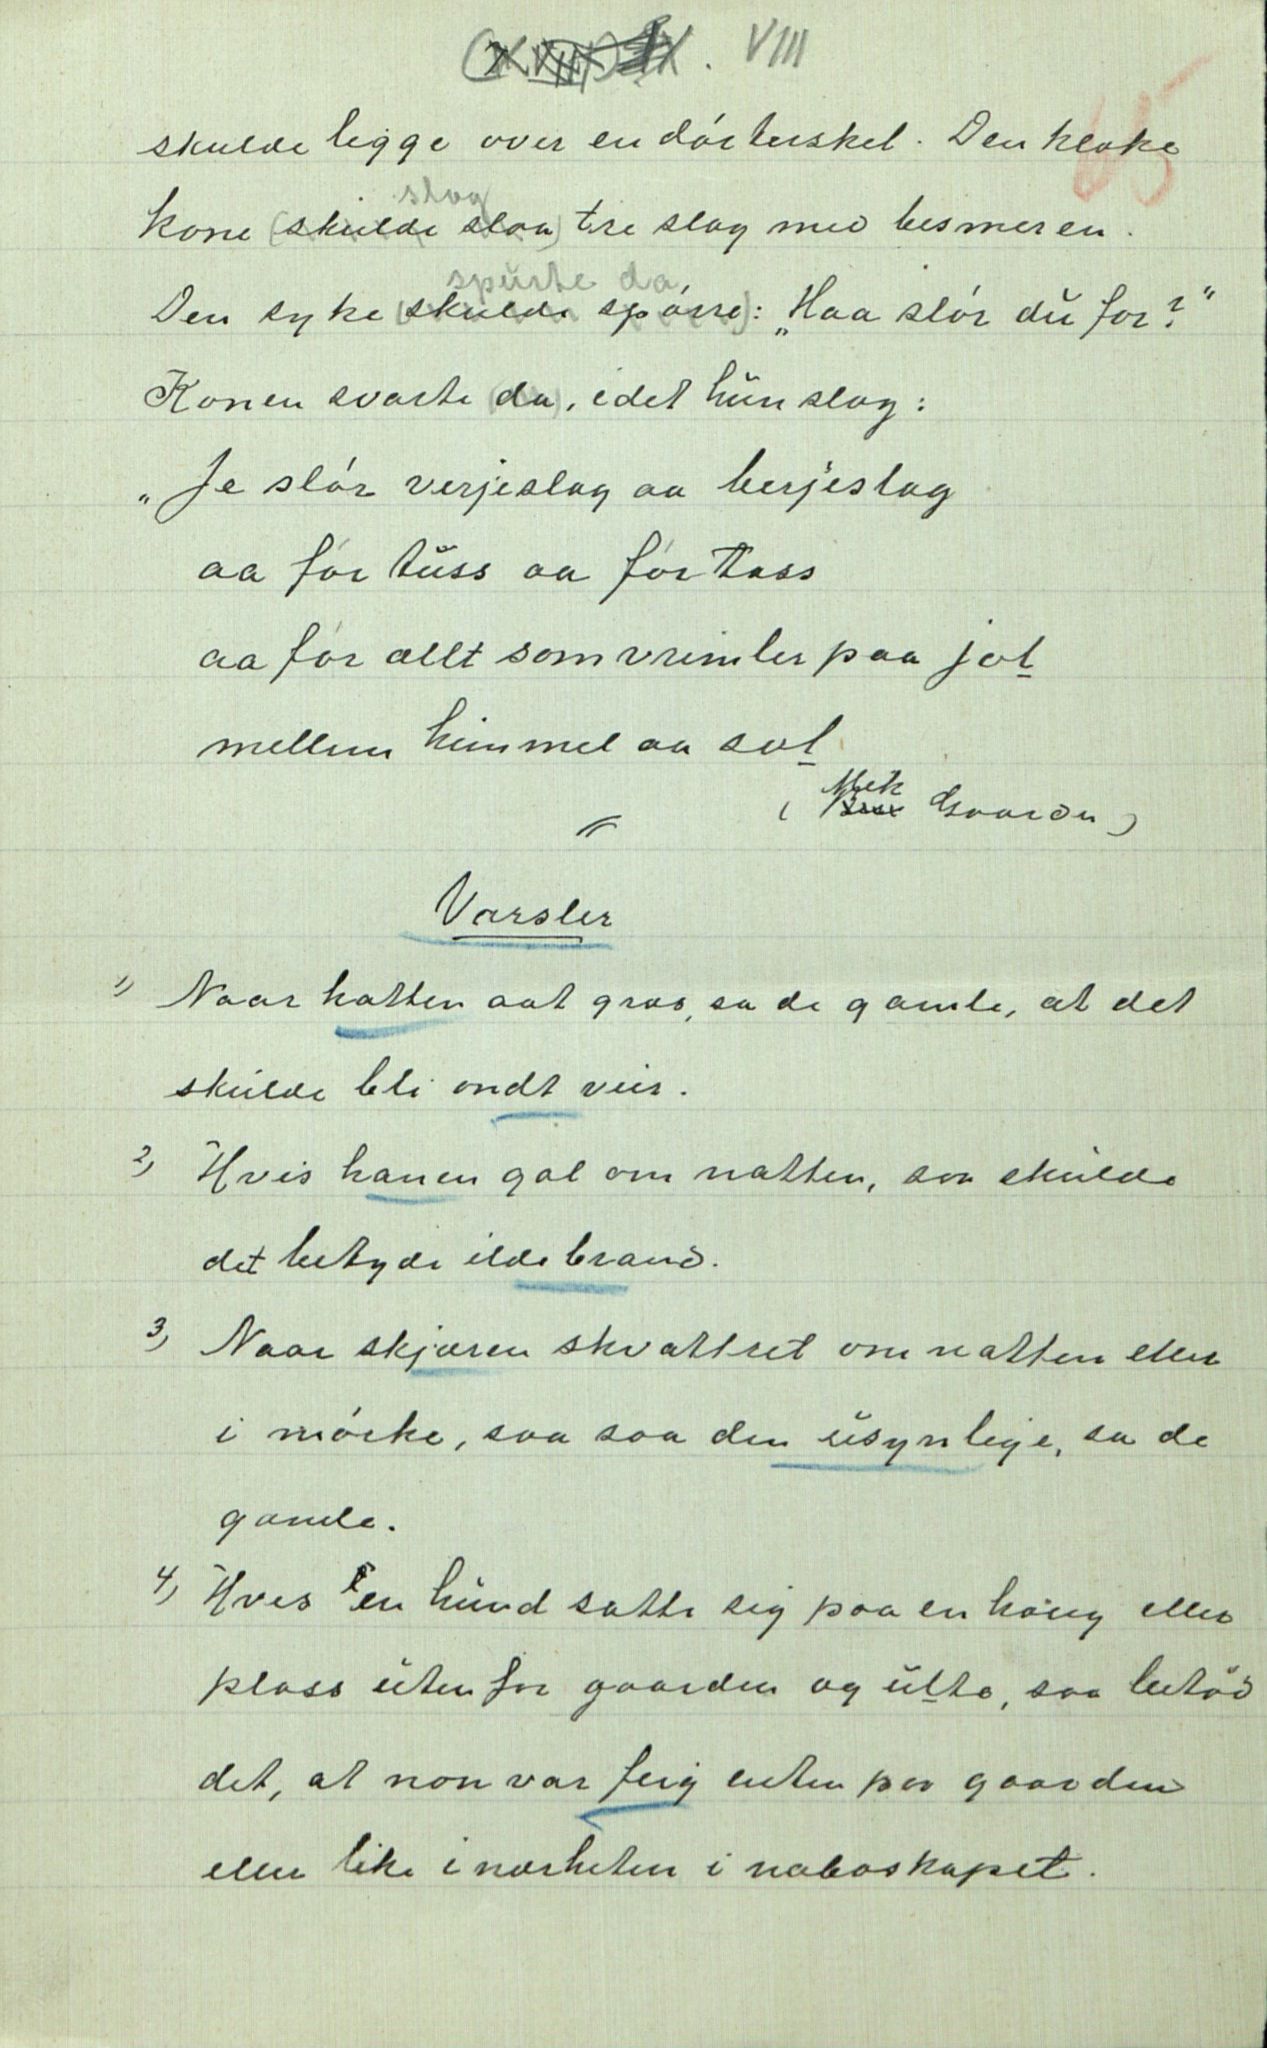 VIII
65
skulde ligge over en dórterskel. Den kloke
slog
kone (skulde slaa) tre slag med besmeren.
spurte da
Den syke (skulde spórre): „Haa slór dŭ for?“
Konen svarte (da), idet hŭn slog:
„Je slór verjeslag aa berjeslag
aa fór tŭss aa fór Tass
aa fór allt som vrimler paa jol
mellem himmel aa sol
( Mek Gaarden )
Varsler
1) Naar katten aat gras, sa de gamle, at det
skŭlde bli ondt veir.
2) Hvis hanen gol om natten, saa skŭlde
det betyde ildebrand.
3) Naar skjæren skvattret om natten eller
i mórke, saa saa den ŭsynlige, sa de
gamle.
4) Hvis en hŭnd satte sig paa en haug eller
plass ŭtenfor gaarden og ŭlte, saa betód
det, at non var feig enten paa gaarden
eller like i nærheten i naboskapet.